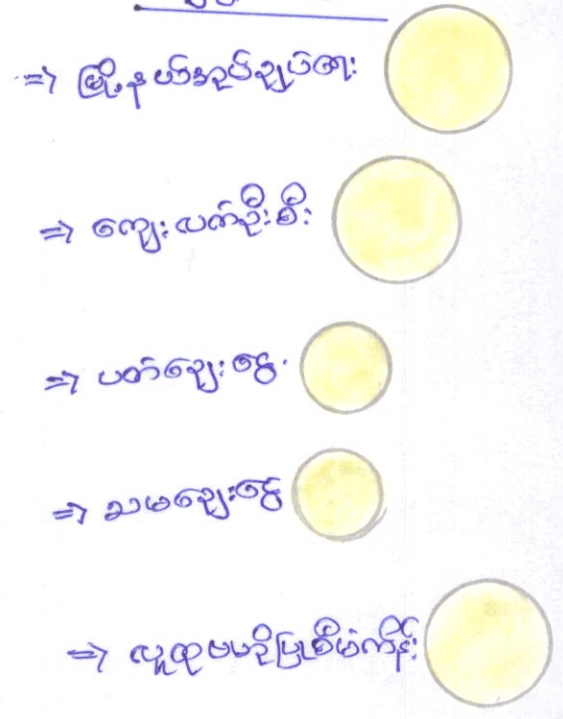 ⇒ မြို့နယ်အုပ်ချုပ်ရေး
⇒ ကျေးလက်ဦးစီး
⇒ ပတ်ချေးငွေ
⇒ သမချေးငွေ
⇒ လူထုဗဟိုပြုစီမံကိန်း